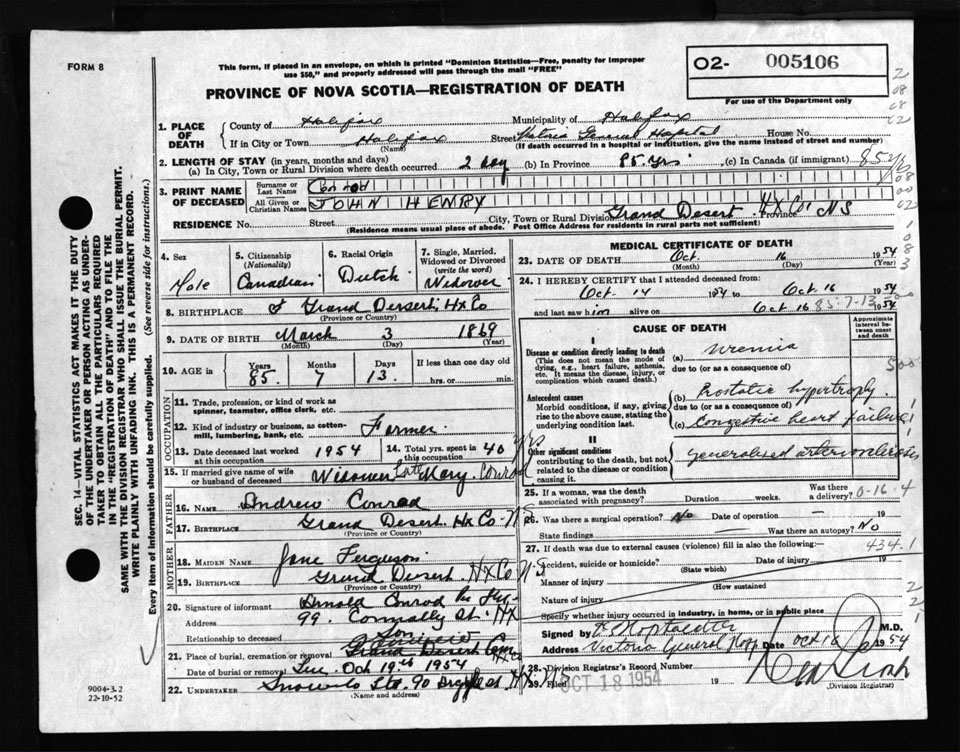 FORM 8
This form, if placed in an envelope, on which is printed "Dominion Statistics—Free, penalty for improper
use $50," and properly addressed will pass through the mail "FREE"
O2- 005106
For use of the Department only
PROVINCE OF NOVA SCOTIA—REGISTRATION OF DEATH
1. PLACE OF DEATH
County of Halifax Municipality of Halifax
If in City or Town Halifax Street Victoria General Hospital House No.
(Name) (If death occurred in a hospital or institution, give the name instead of street and number)
2. LENGTH OF STAY (in years, months and days)
(a) In City, Town or Rural Division where death occurred 2 day (b) In Province 85 yrs (c) In Canada (if immigrant) 85
3. PRINT NAME OF DECEASED
Surname or Last Name Conrod
All Given or Christian Names JOHN HENRY
RESIDENCE No. Street City, Town or Rural Division Grand Desert Hx Co. Province NS
(Residence means usual place of abode. Post Office Address for residents in rural parts not sufficient)
4. Sex
Male
5. Citizenship (Nationality)
Canadian
6. Racial Origin
Dutch
7. Single, Married, Widowed or Divorced (write the word)
Widower
8. BIRTHPLACE Grand Desert, Hx Co
(Province or Country)
9. DATE OF BIRTH March 3 1869
(Month) (Day) (Year)
10. AGE in Years 85 Months 7 Days 13 If less than one day old
hrs. or min.
OCCUPATION
11. Trade, profession, or kind of work as
spinner, teamster, office clerk, etc.
12. Kind of industry or business, as cotton-
mill, lumbering, bank, etc. Farmer
13. Date deceased last worked at this occupation 1954
14. Total yrs. spent in this occupation 40 yrs
15. If married give name of wife
or husband of deceased Widower Late Mary Conrod
FATHER
16. NAME Andrew Conrod
17. BIRTHPLACE Grand Desert Hx Co NS
(Province or Country)
MOTHER
18. MAIDEN NAME Jane Ferguson
19. BIRTHPLACE Grand Desert Hx Co NS
(Province or Country)
20. Signature of informant Arnold Conrod
Address 99 Connolly St. HX
Relationship to deceased Son
21. Place of burial, cremation or removal Grand Desert Cem
Date of burial or removal Tue Oct 19th 1954
22. UNDERTAKER Snow's Ltd. 90 Argyle St HX NS
(Name and address)
MEDICAL CERTIFICATE OF DEATH
23. DATE OF DEATH Oct. 16 1954
(Month) (Day) (Year)
24. I HEREBY CERTIFY that I attended deceased from:
Oct 14 1954 to Oct. 16 1954
and last saw him alive on Oct 16 1954
85-7-13
CAUSE OF DEATH
Approximate interval between onset and death
I
Disease or condition directly leading to death
(This does not mean the mode of
dying, e.g., heart failure, asthenia,
etc. It means the disease, injury, or
complication which caused death.)
(a) Uremia
due to (or as a consequence of)
Antecedent causes
Morbid conditions, if any, giving
rise to the above cause, stating the
underlying condition last.
(b) Prostatic hypertrophy
due to (or as a consequence of)
(c) Congestive heart failure
II
Other significant conditions
contributing to the death, but not
related to the disease or condition
causing it.
Generalised arteriosclerosis
25. If a woman, was the death
associated with pregnancy? Duration weeks. Was there a delivery?
0-16-4
26. Was there a surgical operation? No Date of operation — 19
State findings Was there an autopsy? No
27. If death was due to external causes (violence) fill in also the following:—
434.1
Accident, suicide or homicide? Date of injury 19
(State which)
Manner of injury
(How sustained
Nature of injury
Specify whether injury occurred in industry, in home, or in public place
Signed by M.D.
Address Victoria General Hosp. Date Oct 18 1954
28. Division Registrar's Record Number
29. Filed OCT 18 1954 19
(Division Registrar)
SEC. 14—VITAL STATISTICS ACT MAKES IT THE DUTY
OF THE UNDERTAKER OR PERSON ACTING AS UNDER-
TAKER TO OBTAIN ALL THE PARTICULARS REQUIRED
IN THE "REGISTRATION OF DEATH" AND TO FILE THE
SAME WITH THE DIVISION REGISTRAR WHO SHALL ISSUE THE BURIAL PERMIT.
WRITE PLAINLY WITH UNFADING INK. THIS IS A PERMANENT RECORD.
Every item of information should be carefully supplied. (See reverse side for instructions.)
9004-3.2
22-10-52